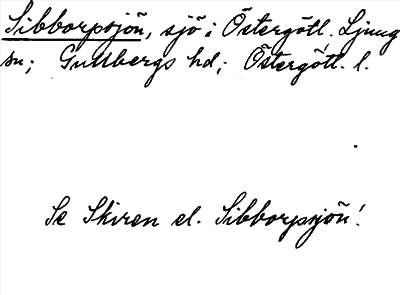 Sibborpsjön, sjö i Östergötl. Ljung
sn; Gullbergs hd; Östergötl. l.
Se Skiren el. Sibborpsjön!